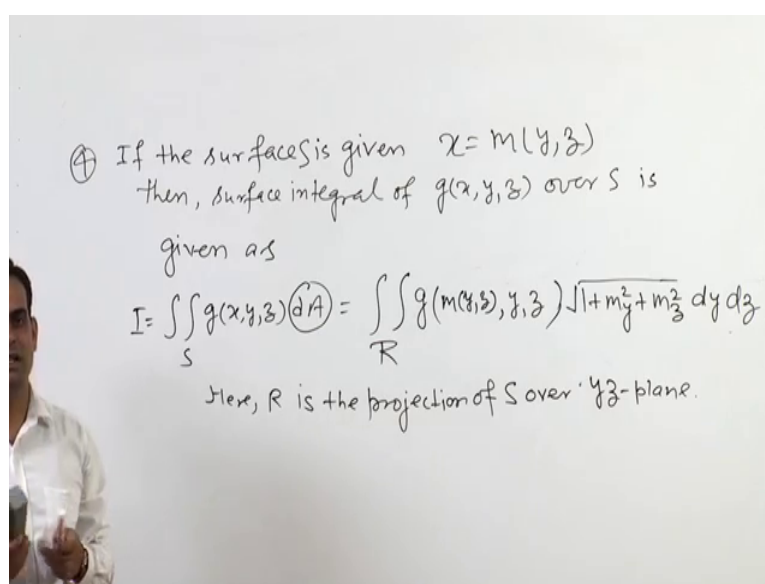 ④ If the surface S is given x = m(y,z)
then, surface integral of g(x,y,z) over S is
given as
I = ∬_S g(x,y,z) dA = ∬_R g(m(y,z), y, z) √(1+m_y²+m_z²) dy dz
Here, R is the projection of S over yz-plane.